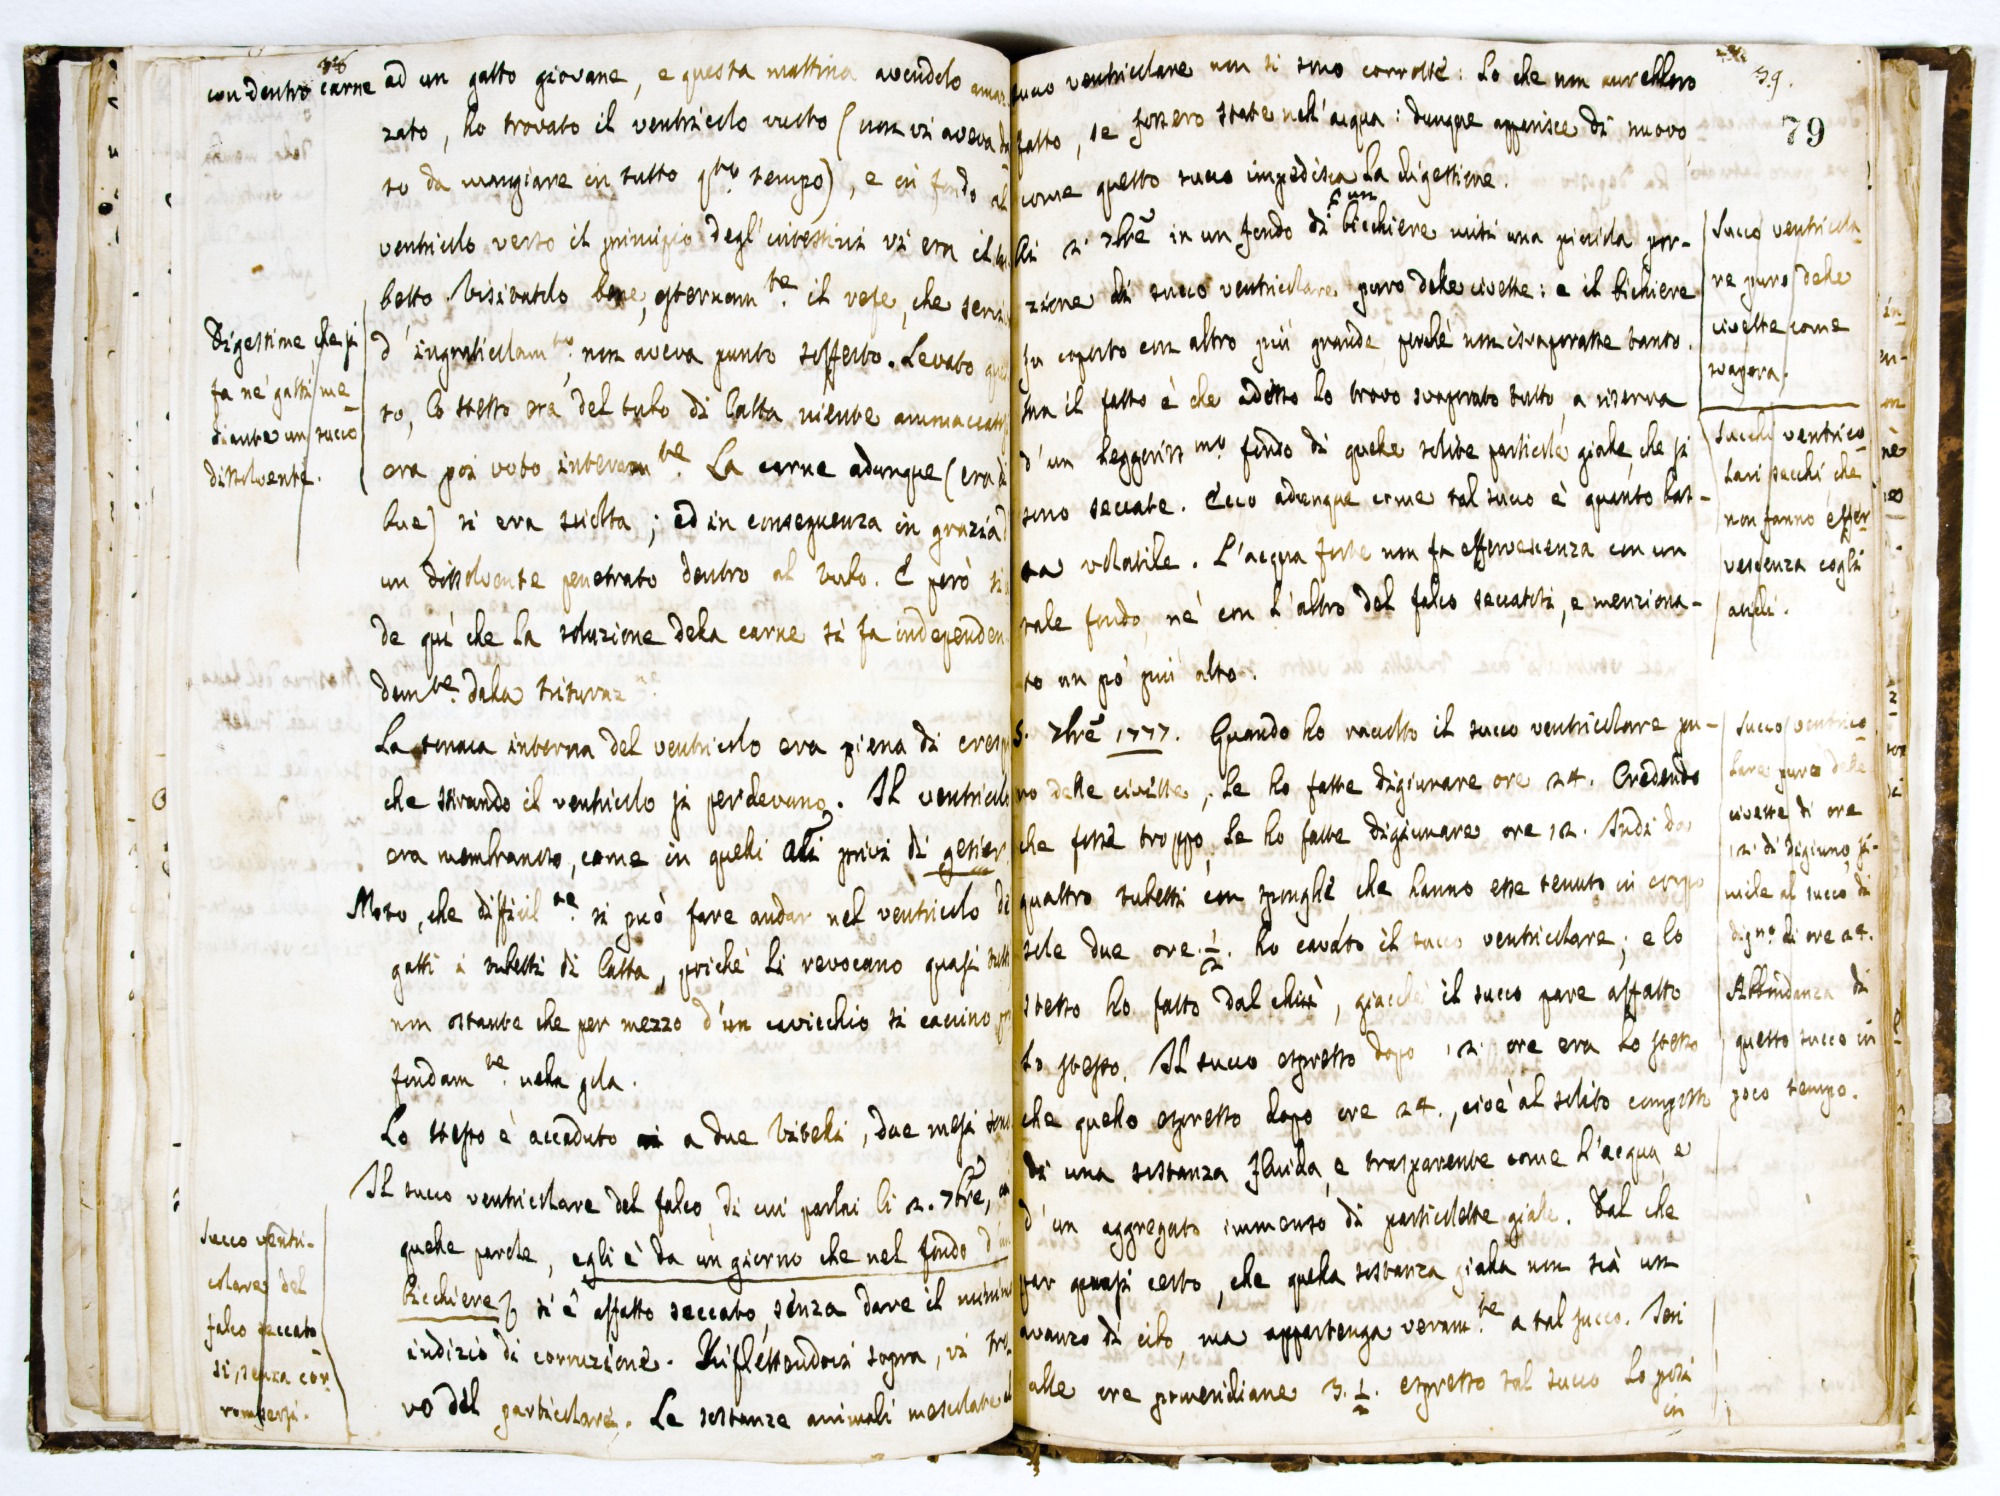 con dentro carne ad un gatto giovane, e questa mattina avendolo amaz
zato, ho trovato il ventricolo vuoto (non vi aveva da
to da mangiare in tutto q.to tempo), e in fondo al
ventricolo verso il principio degl'intestini vi era il tu
betto. Visitatolo bene esternam.te il refe, che servi
d'ingraticolam.to, non aveva punto sofferto. Levato ques
to, lo stesso era del tubo di latta niente ammaccato
era poi voto interam.te. La carne adunque (era di
bue) si era sciolta; ed in conseguenza in grazia d
un dissolvente penetrato dentro al tubo. E però si
de quì che la soluzione della carne si fa independen
dem.te dalla trituraz.ne
La tonaca interna del ventricolo era piena di cresp
che stirando il ventricolo si perdevano. Il ventricolo
era membranoso, come in quelli altri privi di gesier
Noto, che difficil.te si può fare andar nel ventricolo di
gatti i tubetti di latta, poichè li revocano quasi tutti
non ostante che per mezzo d'un cavicchio si caccino pro
fondam.te nella gola.
Lo stesso è accaduto a due Vitelli, due mesi sono
Il succo ventricolare del falco, di cui parlai li 2. 7bre, con
quelle parole, egli è da un giorno che nel fondo d'un
bicchiere si è affatto seccato, senza dare il minimo
indizio di corruzione. Riflettendovi sopra, vi tro
vo del particolare. Le sostanze animali mescolate al
Digestione che si
fa ne' gatti me-
diante un succo
dissolvente.
Succo ventri-
colare del
falco seccato
si, senza cor
rompersi.
39.
79
succo ventricolare non si sono corrotte: Lo che non avrebbero
fatto, se fossero state nell'acqua: dunque apparisce di nuovo
come questo succo impedisca la digestione.
Li 2. 7bre in un fondo di un bicchiere misi una piccola por-
zione di succo ventricolare puro delle civette: e il bichiere
fu coperto con altro più grande perchè non isvaporasse tanto.
ma il fatto è che adesso lo trovo svaporato tutto, a riserva
d'un leggeriss.mo fondo di quelle solite particole gialle, che si
sono seccate. Ecco adunque come tal succo è quanto bas-
ta volatile. L'acqua forte non fa effervescenza con un
tale fondo, nè con l'altro del falco seccatosi, e menziona-
to un pò più alto.
5. 7bre 1777. Quando ho raccolto il succo ventricolare pu-
ro delle civette, le ho fatte digiunare ore 24. Credendo
che fosse troppo, le ho fatte digiunare ore 12. Indi da
quattro tubetti con spunghe che hanno esse tenuto in corpo
sole due ore 1/2. ho cavato il succo ventricolare; e lo
stesso ho fatto dal chiù, giacchè il succo pare affatto
lo stesso. Il succo espresso dopo 12. ore era lo stesso
che quello espresso dopo ore 24., cioè al solito composto
di una sostanza fluida, e trasparente come l'acqua, e
d'un aggregato immenso di particolette gialle. Dal che
par quasi certo, che quella sostanza gialla non sia un
avanzo di cibo, ma appartenga veram.te a tal succo. Ieri
alle ore pomeridiane 3. 1/2. espresso tal succo lo posi
in
Succo ventricola-
re puro delle
civette come
svapora.
Succhi ventrico-
lari secchi che
non fanno effer
vescenza cogli
acidi.
Succo ventrico
lare puro delle
civette di ore
12. di digiuno, si-
mile al succo di
dign.o di ore 24.
Abbondanza di
questo succo in
poco tempo.